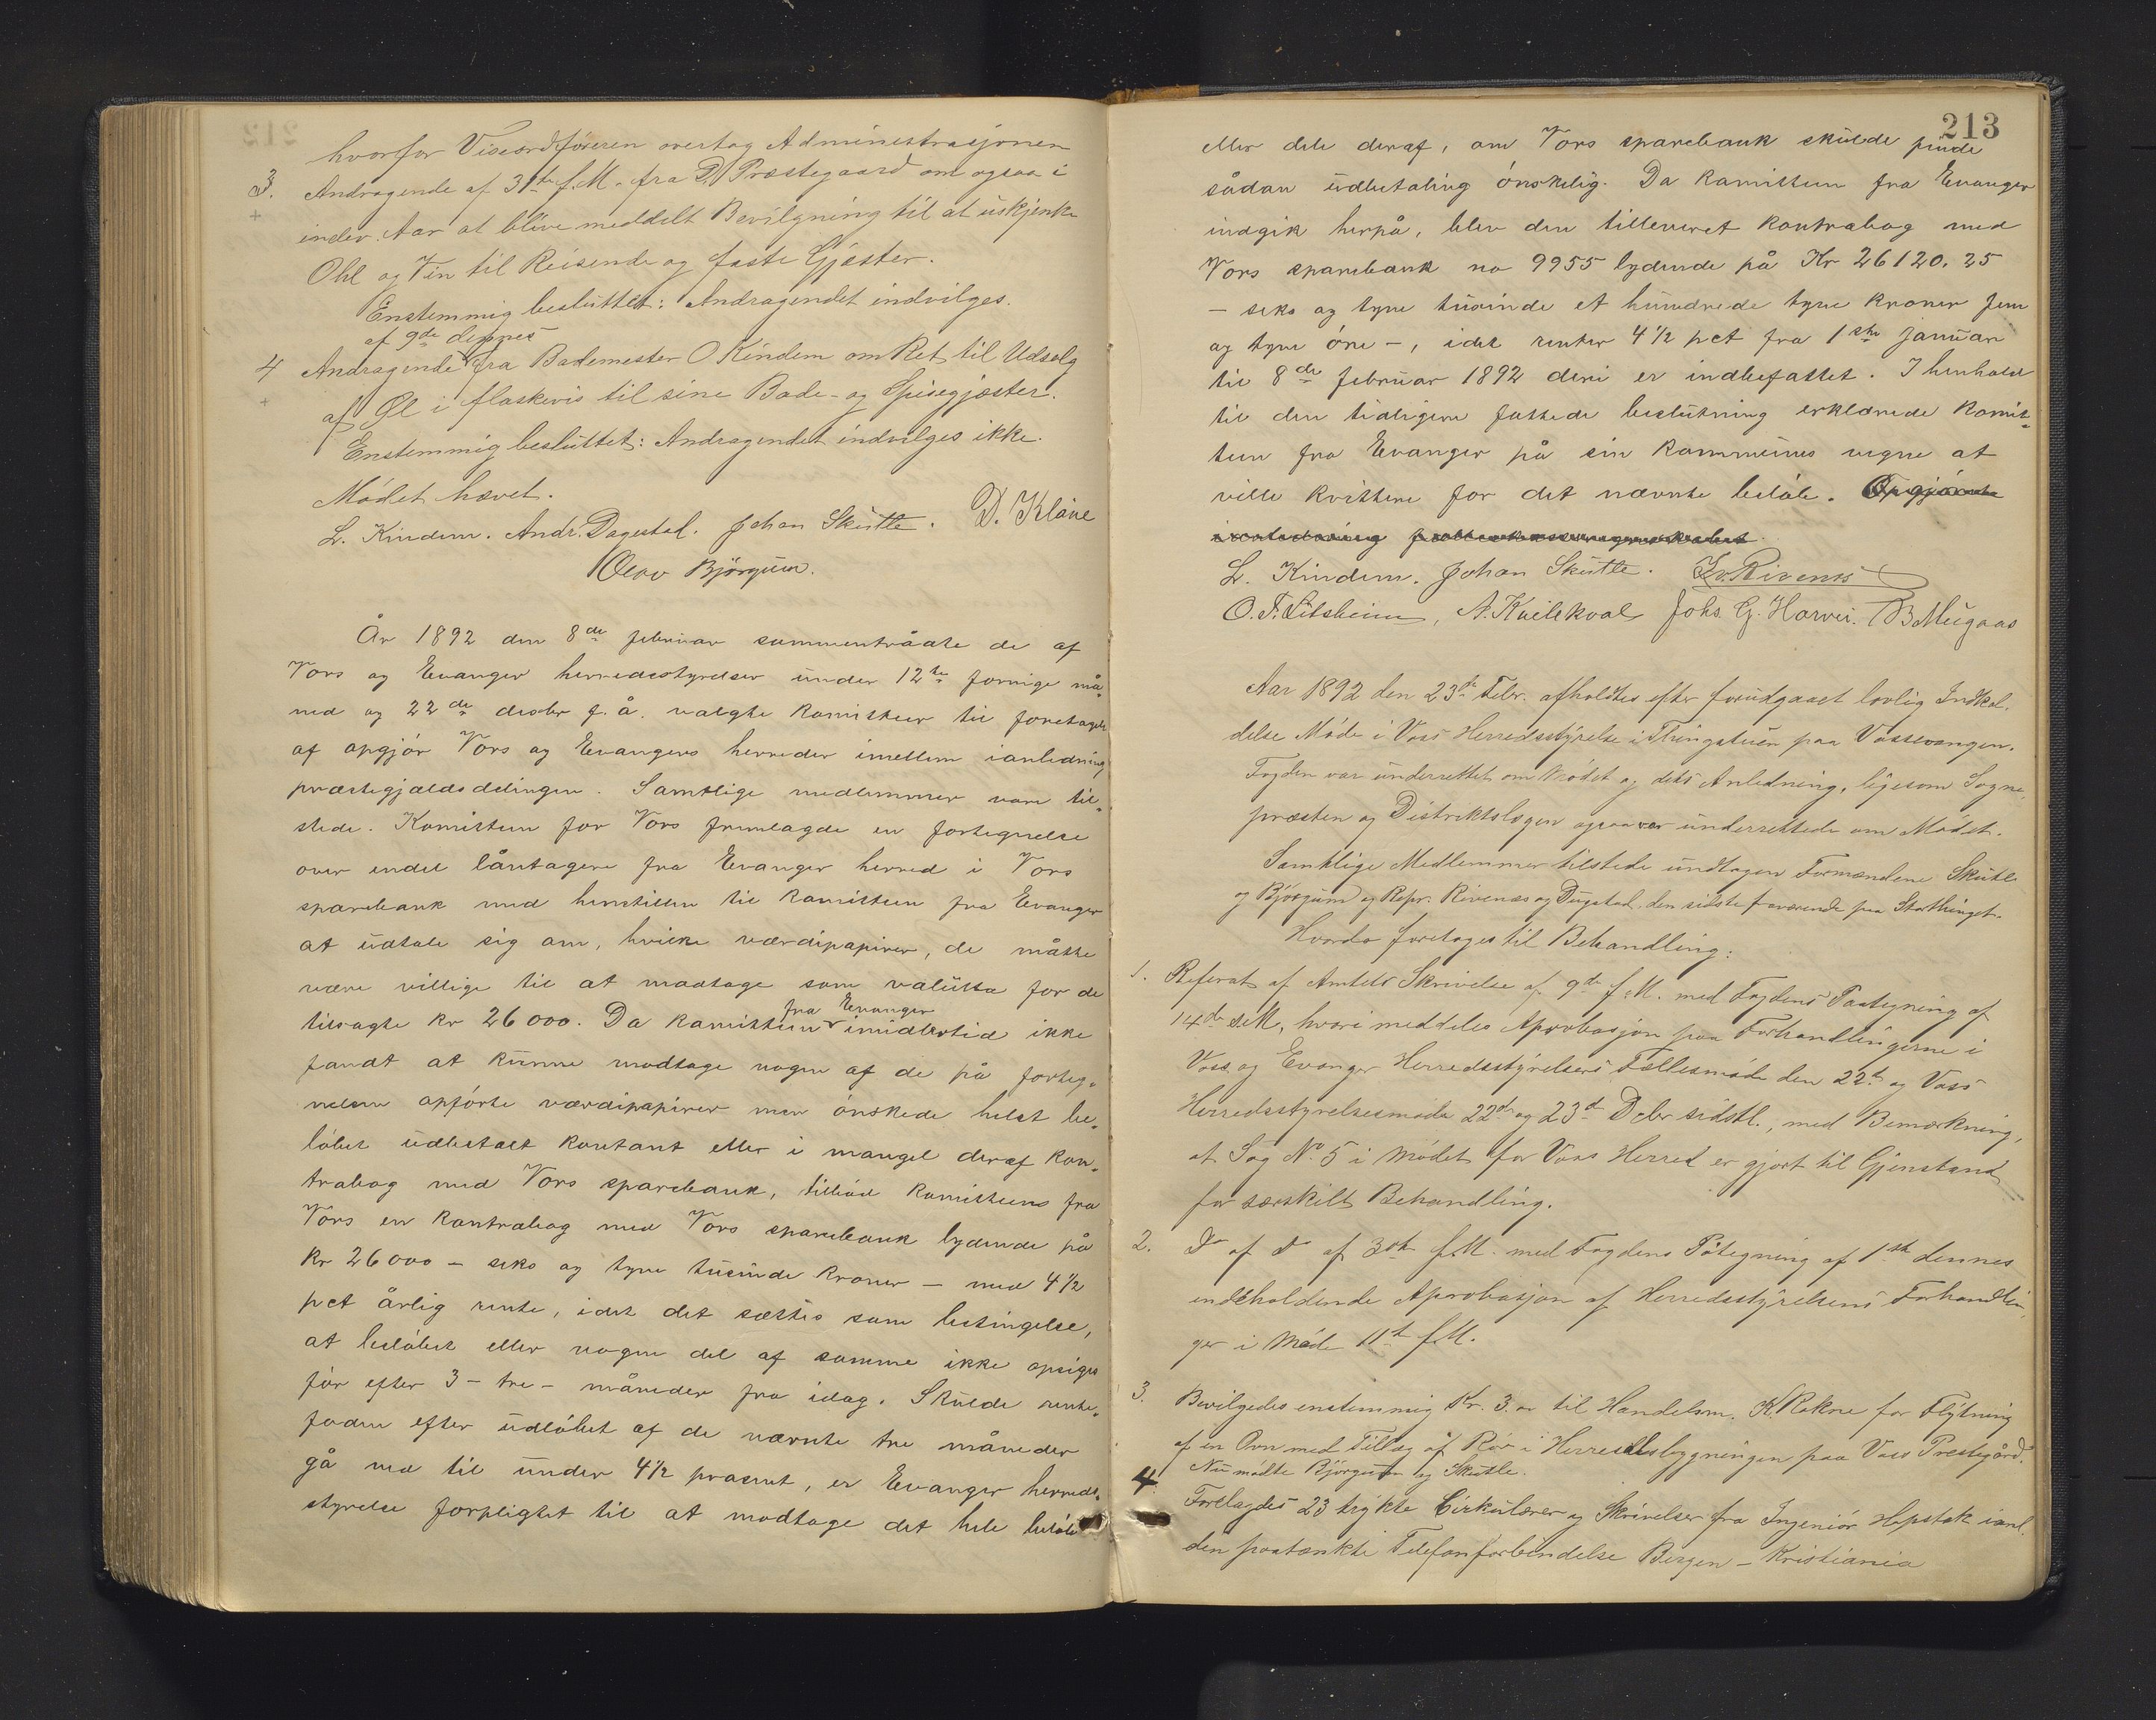 hvorfor Viseordføreren overtog Administrasjonen
3. Andragende af 31te f.M. fra P. Præstegaard om ogsaa i
indev. Aar at blive meddelt Bevilgning til at uskjenke
Ohl og Vin til Reisende og faste Gjæster.
Enstemmig besluttet: Andragendet indvilges.
af 9de dennes
4 Andragende fra Bademester O Kindem om Ret til Udsalg
af Øl i flaskevis til sine Bade- og Spisegjæster.
Enstemmig besluttet: Andragendet indvilges ikke.
Mødet hævet.
L. Kindem. Andr. Dagestad. Johan Skutle. D. Kløve
Olav Bjørgum.
År 1892 den 8de februar sammentrådte de af
Vors og Evanger herredsstyrelser under 12te forrige må-
ned og 22de desbr f.å. valgte komiteer til foretagelse
af opgjør Vors og Evangers herreder imellem i anledning
præstegjældsdelingen. Samtlige medlemmer vare til-
stede. Komiteen for Vors fremlagde en fortegnelse
over endel låntagere fra Evanger herred i Vors
sparebank med henstillen til komiteen fra Evanger
at udtale sig om, hvilke værdipapirer, de måtte
være villige til at modtage som valutta for de
tilsagte kr 26000. Da komiteen fra Evanger imidlertid ikke
fandt at kunne modtage nogen af de på forteg-
nelsen opførte værdipapirer men ønskede helst be-
løbet udbetalt kontant eller i mangel deraf kon-
trabog med Vors sparebank, tilbød komiteens fra
Vors en kontrabog med Vors sparebank lydende på
kr 26000 – seks og tyve tusinde kroner – med 4½
pct årlig rente, idet det sættes som betingelse,
at beløbet eller nogen del af samme ikke opsiges
før efter 3 – tre – måneder fra idag. Skulde rente-
foden efter udløbet af de nævnte tre måneder
gå ned til under 4½ procent, er Evanger herreds-
styrelse forpligtet til at modtage det hele beløb
213
eller dele deraf, om Vors sparebank skulde finde
sådan udbetaling ønskelig. Da komiteen fra Evanger
indgik herpå, blev den tilleveret kontrabog med
Vors sparebank no 9955 lydende på Kr 26120.25
– seks og tyve tusinde et hundrede tyve kroner fem
og tyve øre –, idet renter 4½ pct fra 1ste januar
til 8de februar 1892 deri er indbefattet. I henhold
til den tidligere fattede beslutning erklærede komi-
teen fra Evanger på sin kommunes vegne at
ville kvittere for det nævnte beløb.
L. Kindem. Johan Skutle. Iv. Rivenes
O. T. Litsheim, A. Kvilekval Johs. G. Horvei. B Mugaas
Aar 1892 den 23de Febr. afholdtes efter forudgaaet lovlig Indkal-
delse Møde i Voss Herredsstyrelse i Thingstuen paa Vossevangen.
Fogden var underrettet om Mødet og dets Anledning, ligesom Sogne-
præsten og Distriktslægen ogsaa var underrettede om Mødet.
Samtlige Medlemmer tilstede undtagen Formændene Skutle
og Bjørgum og Repr. Rivenæs og Dugstad, den sidste fraværende paa Storthinget.
Hvorda foretoges til Behandling:
1. Referat af Amtets Skrivelse af 9de f.M. med Fogdens Paategning af
14de s.M., hvori meddeles Aprobasjon paa Forhandlingerne i
Voss og Evanger Herredsstyrelsers Fællesmøde den 22de og Voss
Herredsstyrelsesmøde 22de og 23de Debr sidstl., med Bemærkning,
at Sag No 5 i Mødet for Voss Herred er gjort til Gjenstand
for særskilt Behandling.
2. Do af Do af 30te f.M. med Fogdens Påtegning af 1ste dennes
indeholdende Aprobasjon af Herredsstyrelsens Forhandlin-
ger i Møde 11te f.M.
3. Bevilgedes enstemmig Kr. 3.00 til Handelsm. K. Rokne for Flytning
af en Ovn med Tillæg af Rør i Herredsbygningen paa Voss Prestegård.
Nu mødte Bjørgum og Skutle.
4 Forelagdes 23 trykte Cirkulærer og Skrivelser fra Ingeniør Hopstok ianl.
den paatænkte Telefonforbindelse Bergen – Kristiania